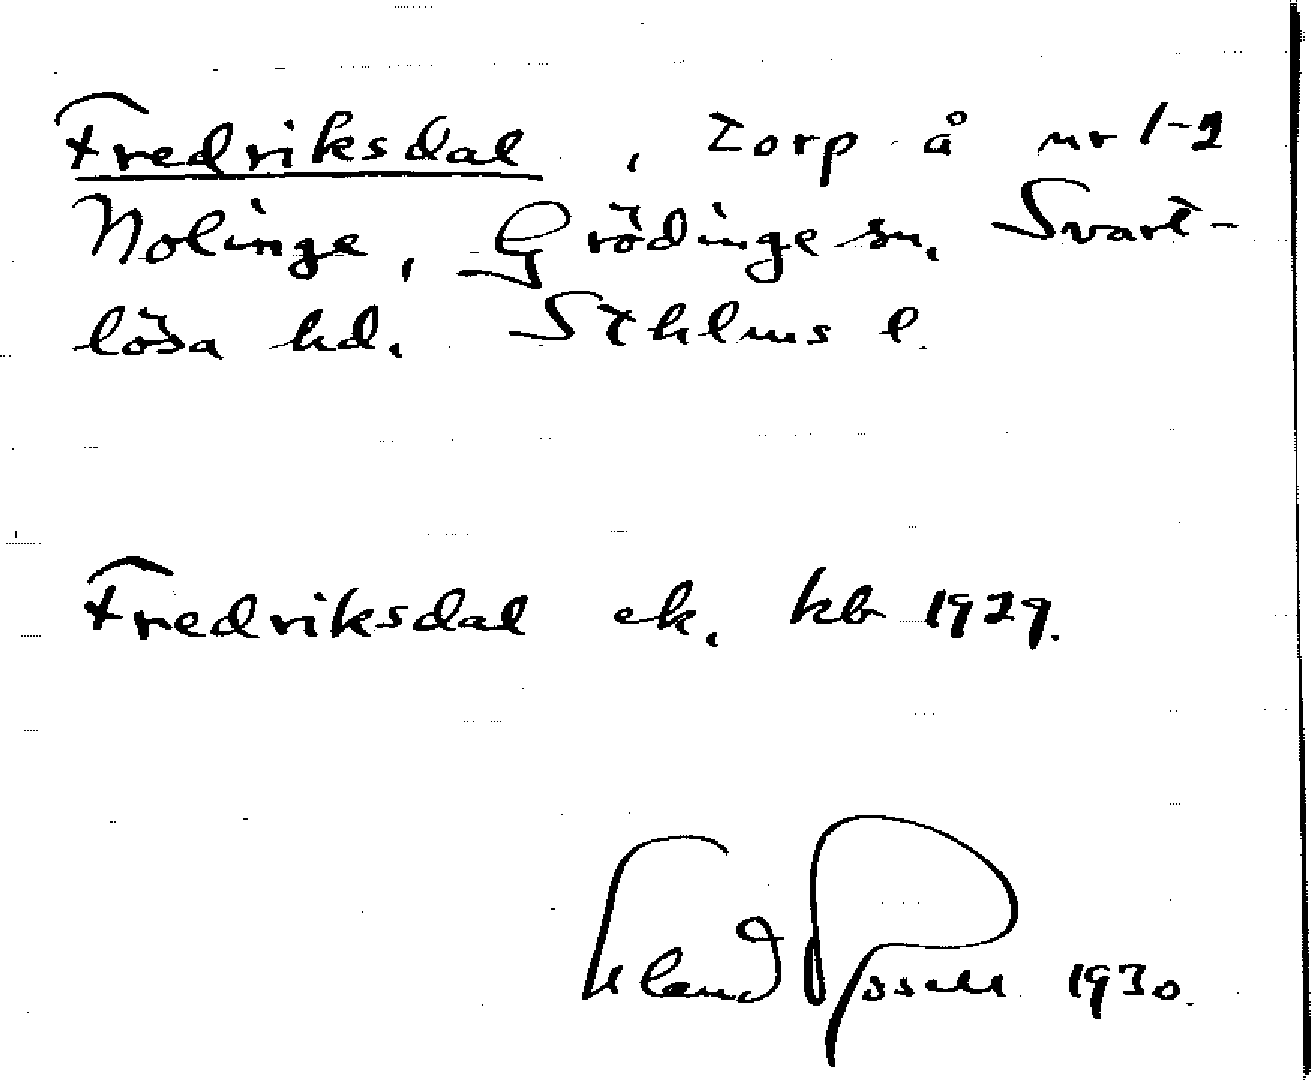 Fredriksdal, torp å nr 1-2
Nolinge, Grödinge sn, Svart-
lösa hd, Sthlms l.
Fredriksdal ek. kb 1929.
1930.